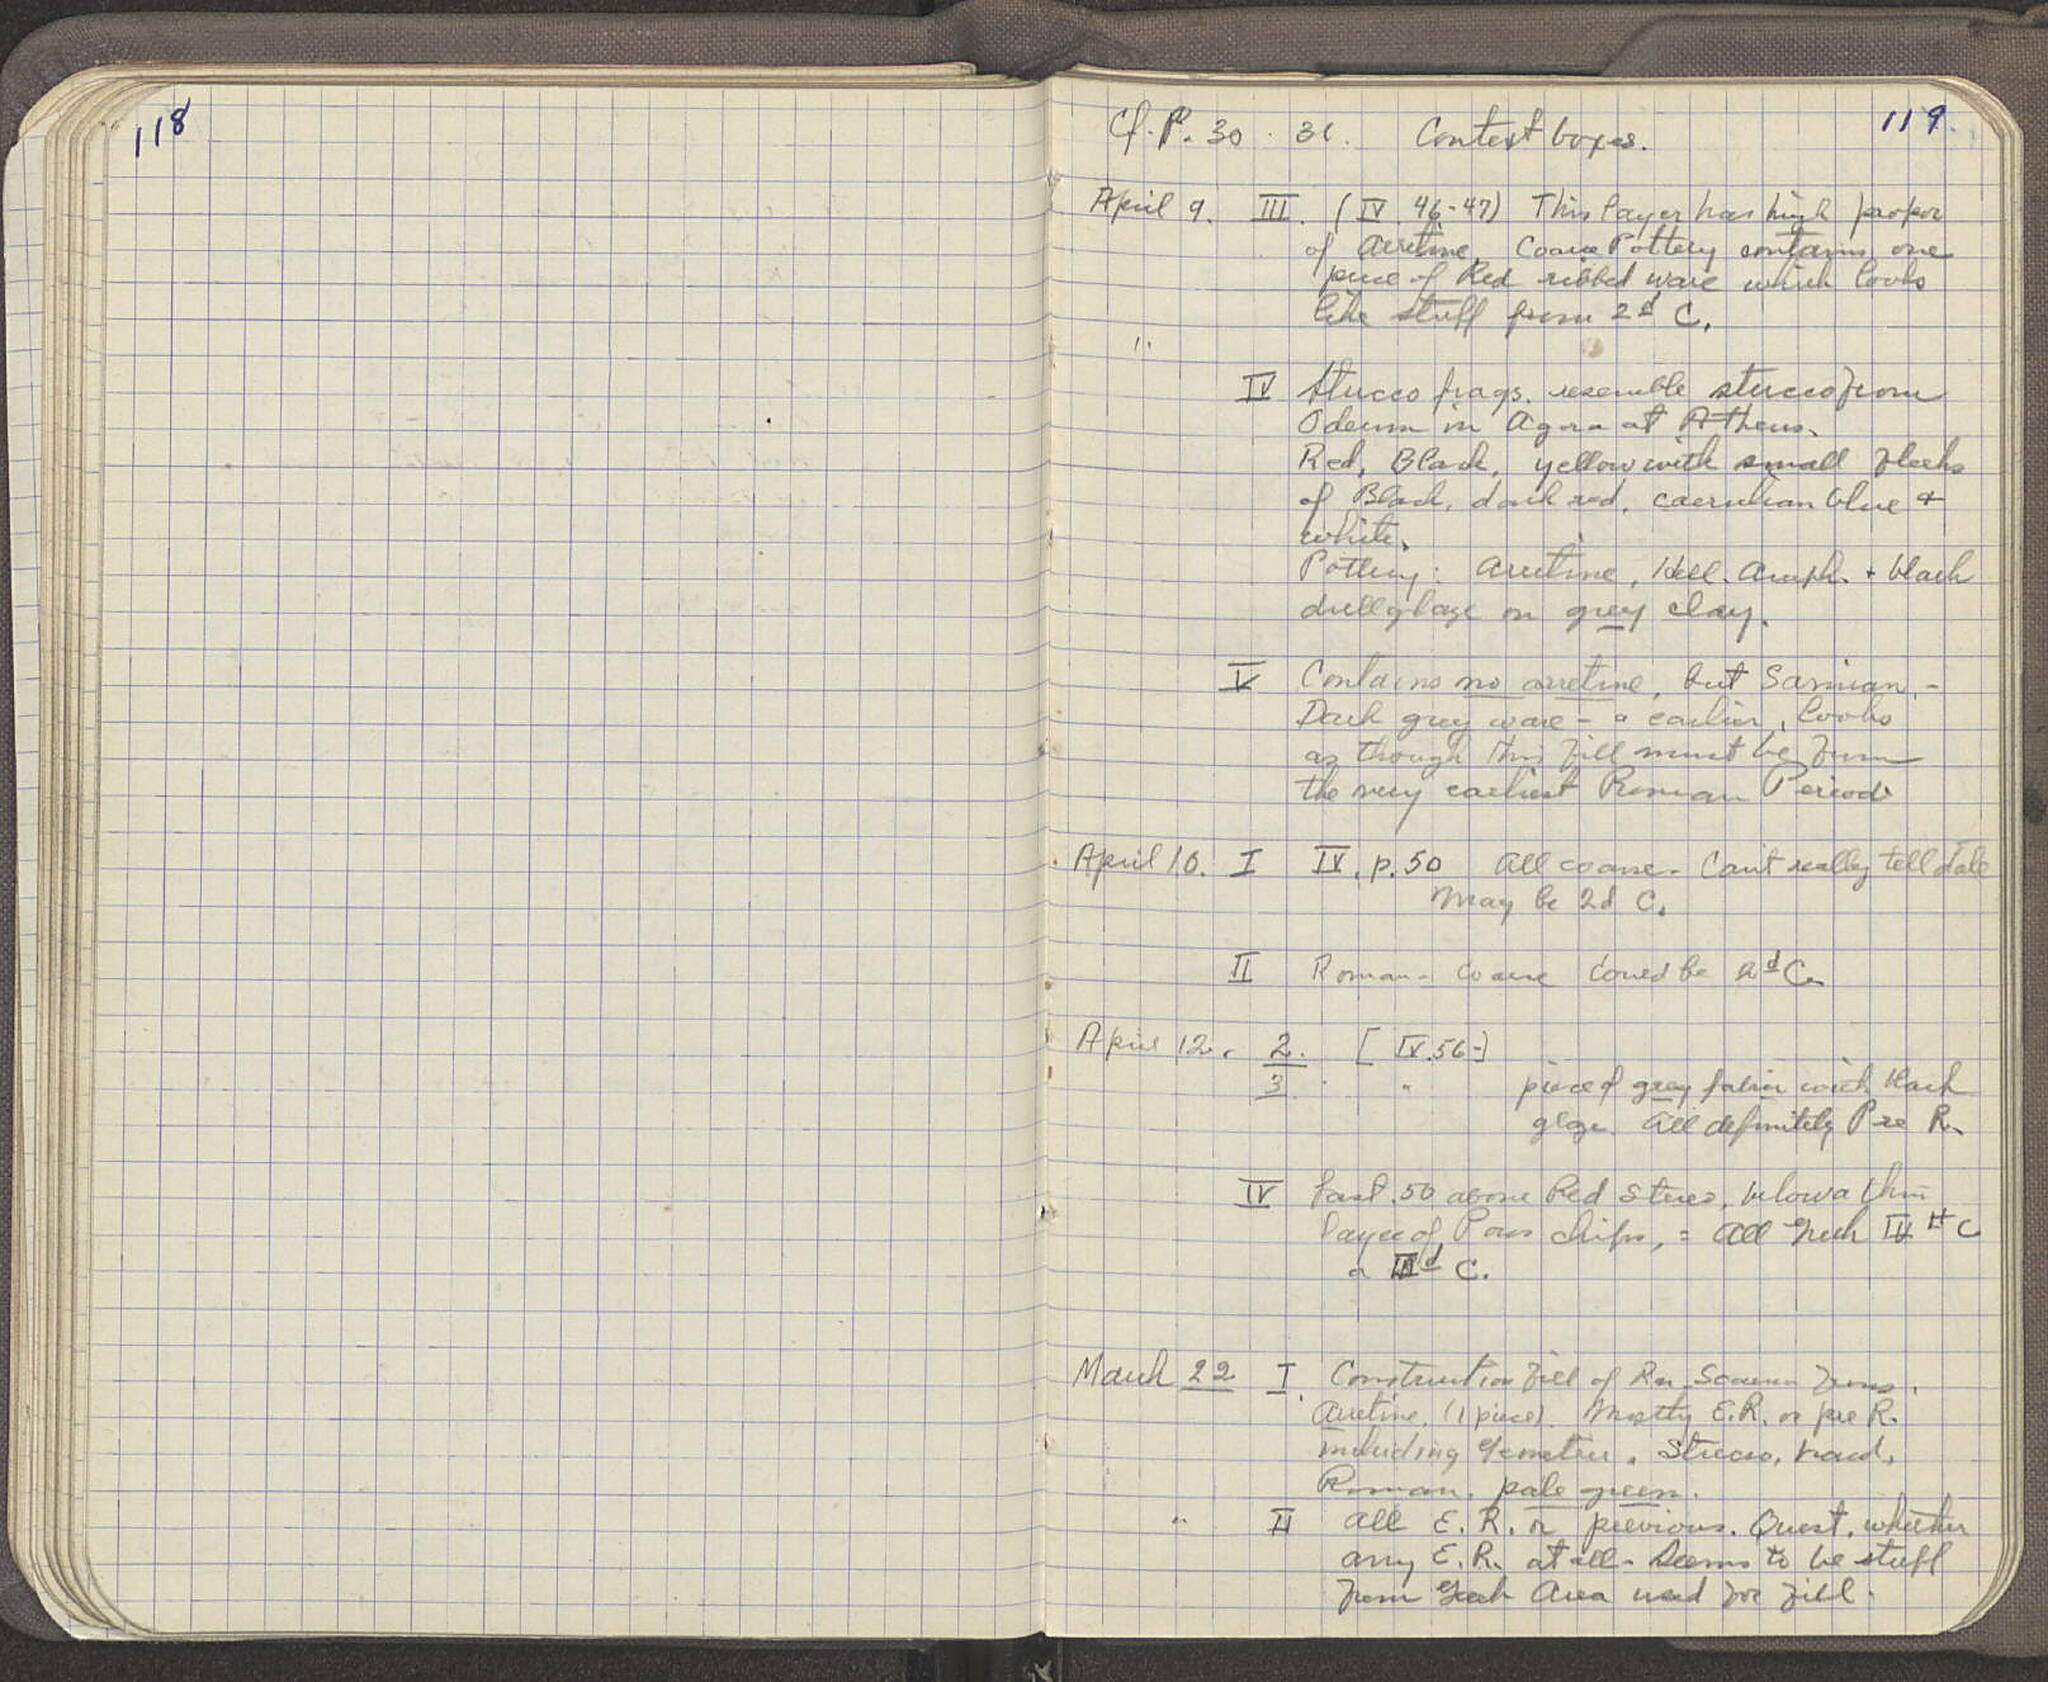 118
119
Cf. P. 30 - 31. Context boxes.
April 9. III. (IV. 46-47) This layer has high propor
of Arretine. Coarse Pottery contains one
piece of Red ribbed ware which looks
like stuff from 2d C.
"
IV Stucco frags. resemble stucco from
Odeum in Agora at Athens.
Red, Black, yellow with small flecks
of Black, dark red, caerulean blue +
white.
Pottery: Arretine, Hell. Amph. + black
dull glaze on grey clay.
V Contains no arretine, but Samian. -
Dark grey ware - a earlier, looks
as though this fill must be from
the very earliest Roman Period
April 10. I IV, p. 50 All coarse - Can't really tell date
May be 2d C.
II Roman - coarse Could be 2d C.
April 12. 2. [IV. 56-]
3. " piece of grey fabric with black
glaze. All definitely Pre R.
IV Last .50 above Red Stereo, below a thin
layer of Poros chips, = All Greek IV th C
or IIId C.
March 22 I. Construction fill of Rm. Scaena Frons.
Arretine. (1 piece). Mostly E.R. or pre R.
including Geometric. Stucco, hard,
Roman. pale green.
" II All E.R. or previous. Quest. whether
any E.R. at all - Seems to be stuff
from Greek Area used for fill.